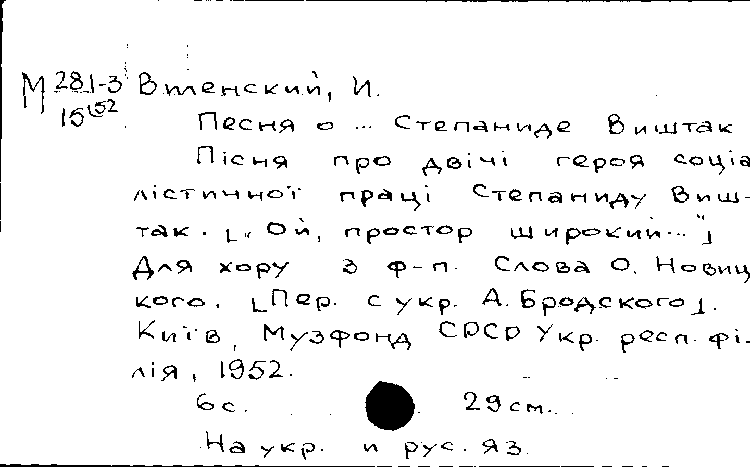 М 28.1-3 Виленский, И.
15 152
Песня о ... Степаниде Виштак
Пісня про двічі героя соціа
лістичної праці Степаниду Виш-
так. [„Ой, простор широкий..."]
Для хору з ф-п. Слова О. Новиц
кого. [Пер. с укр. А. Бродского].
Київ, Музфонд СРСР Укр. респ. фі-
лія, 1952.
6с. 29см.
На укр. и рус. яз.